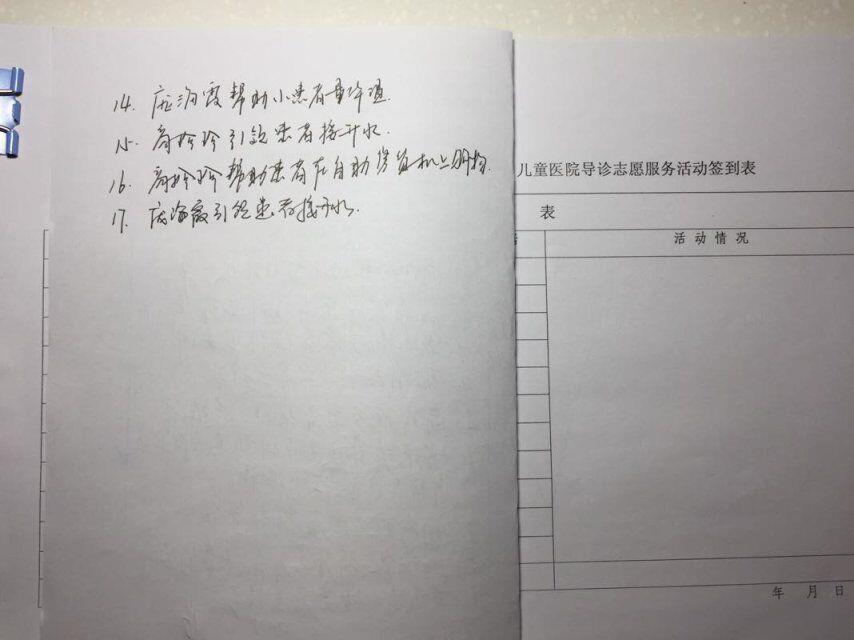 14. 庞海霞帮助小患者量体温.
15. 高玲玲引领患者接开水.
16. 高玲玲帮助患者在自助售货机上购物.
17. 庞海霞引领患者接开水.
儿童医院导诊志愿服务活动签到表
表
活动情况
年 月 日